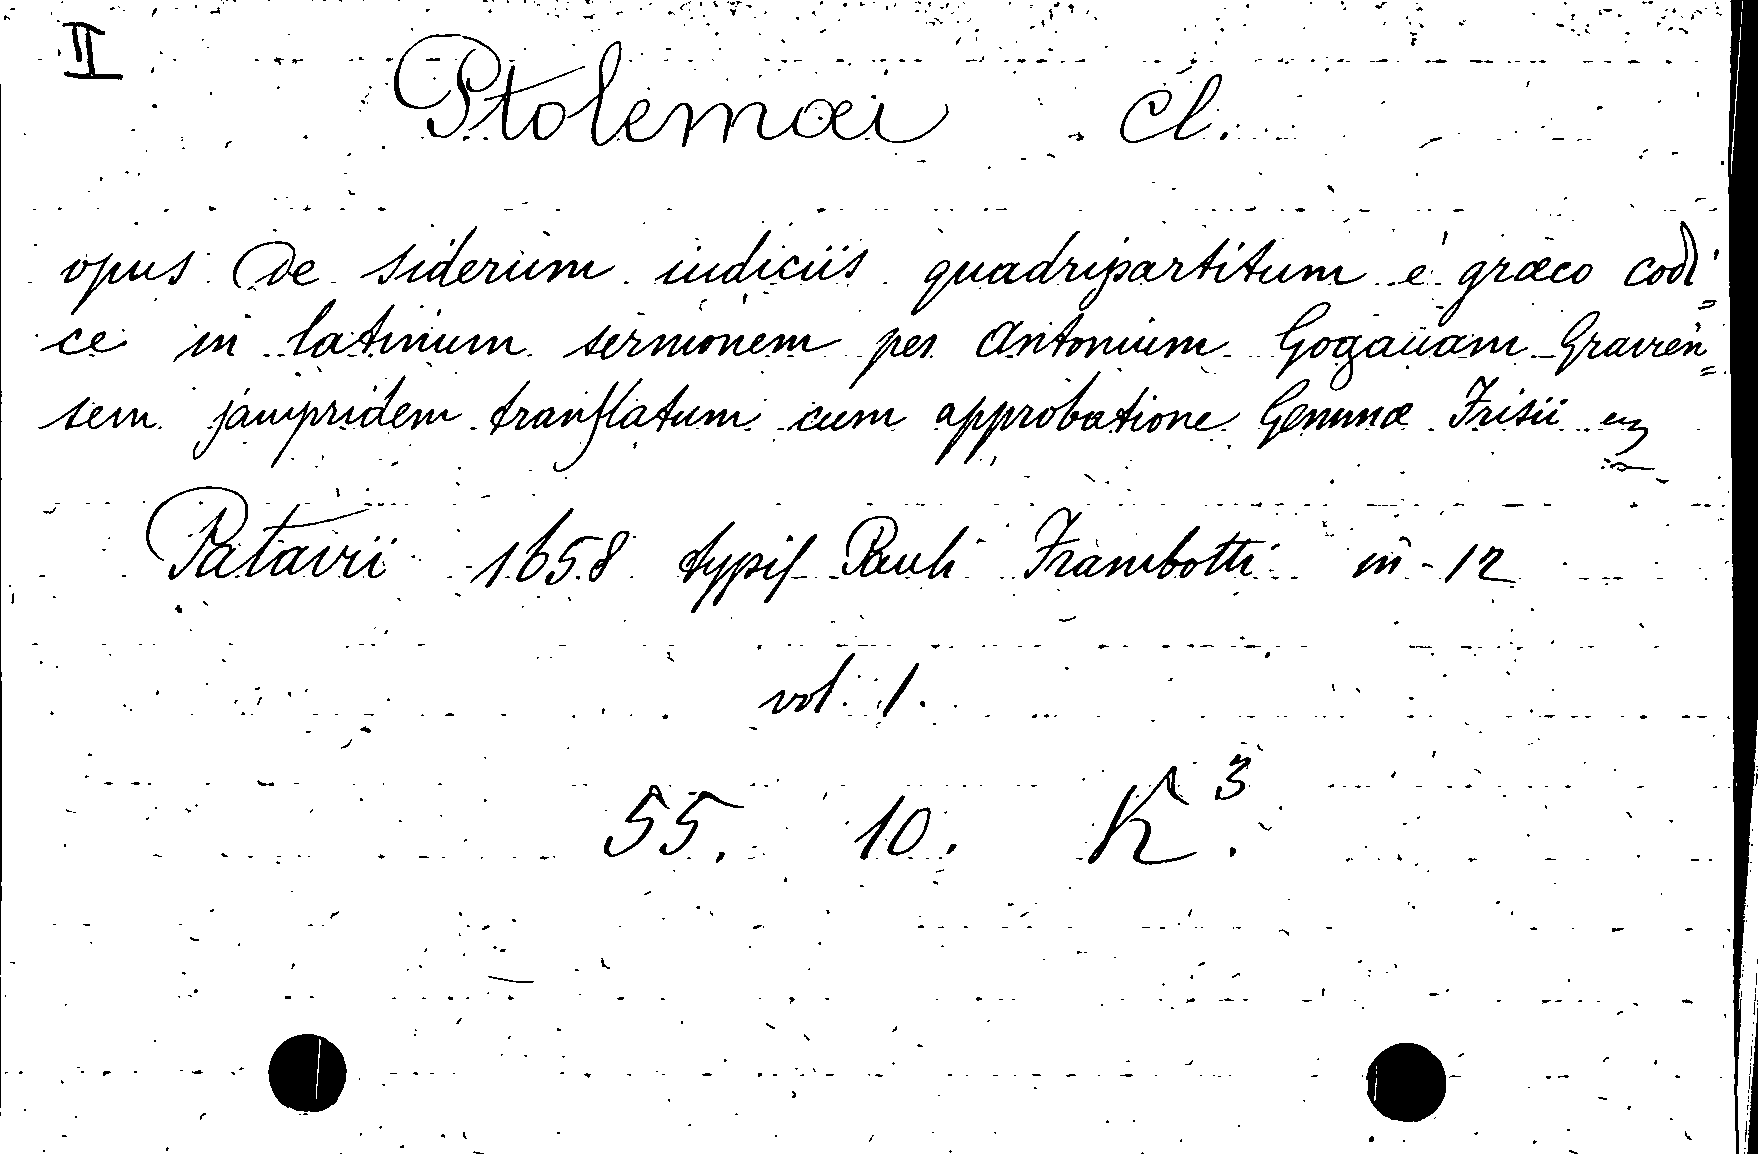 II
Ptolemæi Cl.
opus De siderum iudiciis quadripartitum è græco codi=
ce in latinum sermonem per Antonium Gogauam Gravien=
sem jampridem tranſlatum cum approbatione Gemmæ Frisii
Patavii 1658 typiſ Pauli Frambotti in-12
vol. 1.
55. 10. K³.